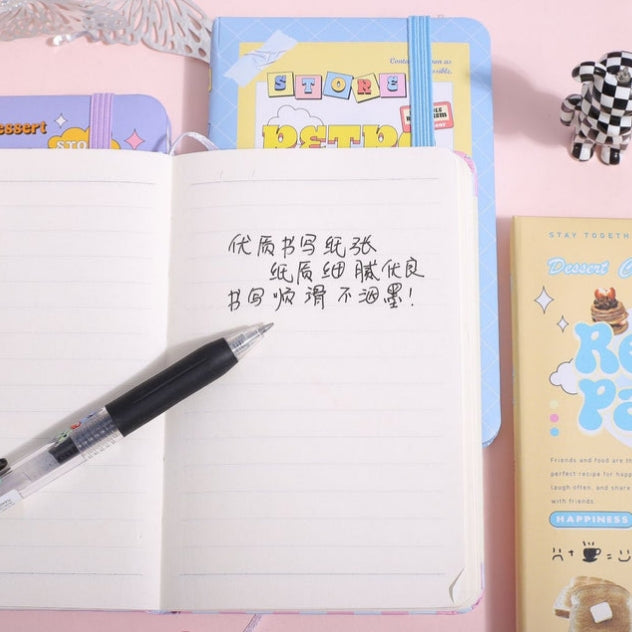 Dessert
STO
STORE
RETRO
优质书写纸张
纸质细腻优良
书写顺滑不洇墨!
STAY TOGETH
Dessert C
Re
Pa
Friends and food are th
perfect recipe for happ
laugh often, and share
with friends.
HAPPINESS